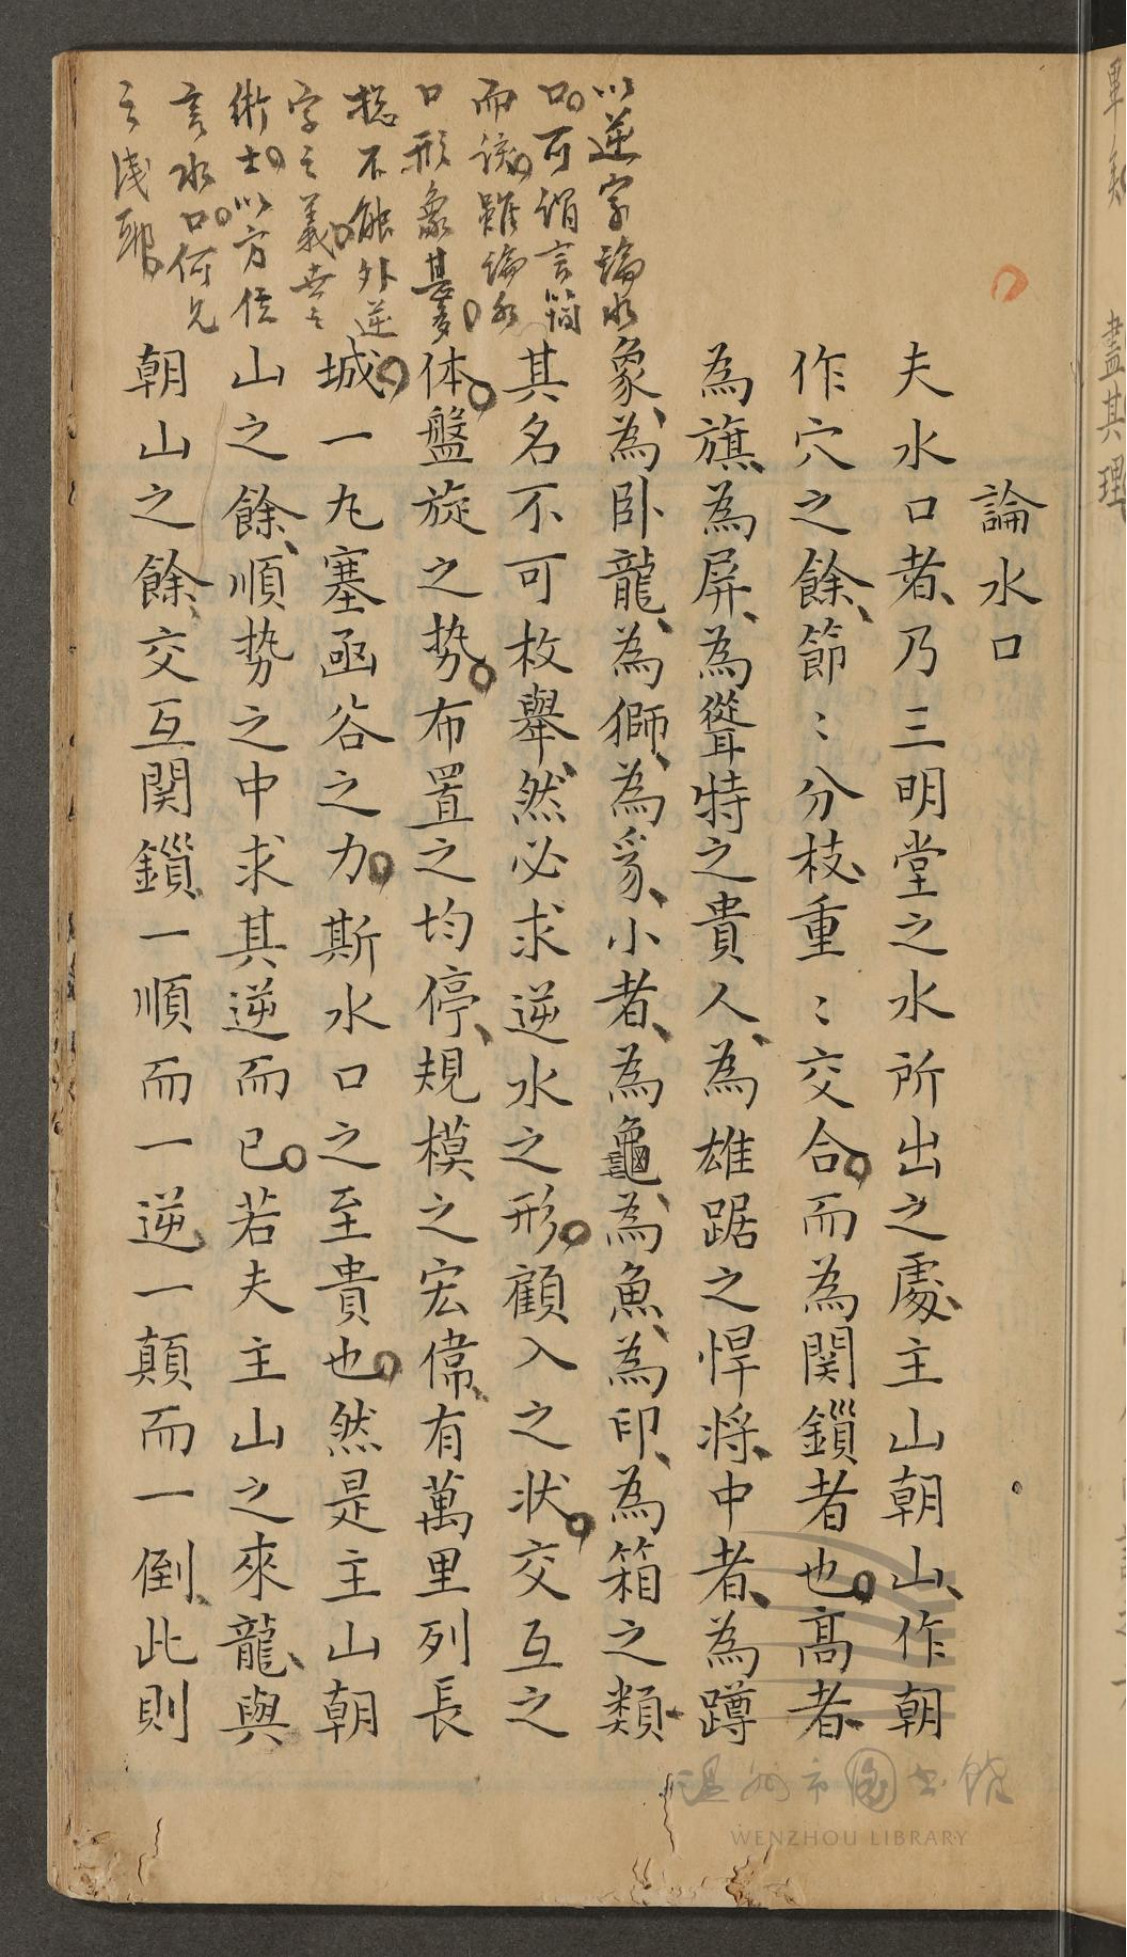 論水口
夫水口者、乃三明堂之水所出之處、主山朝山、作朝
作穴之餘、節〻分枝、重〻交合。而為関鎖者也。高者、
為旗、為屏、為聳特之貴人、為雄踞之悍将、中者、為蹲
象、為卧龍、為獅、為豸、小者、為龜、為魚、為印、為箱之類、
其名不可枚舉、然必求逆水之形。顧入之状。交互之
体。盤旋之势。布置之均停、規模之宏偉、有萬里列長
城。一丸塞函谷之力。斯水口之至貴也。然是主山朝
山之餘、順势之中求其逆而已。若夫主山之來龍、與
朝山之餘、交互関鎖、一順而一逆、一顛而一倒、此則
以逆字論水
口。可謂言簡
而該。雖論水
口形象甚多。
捴不能外逆
字之義。世之
術士。以方位
言水口。何見
之淺耶。
盡其理
温州市图书馆
WENZHOU LIBRARY